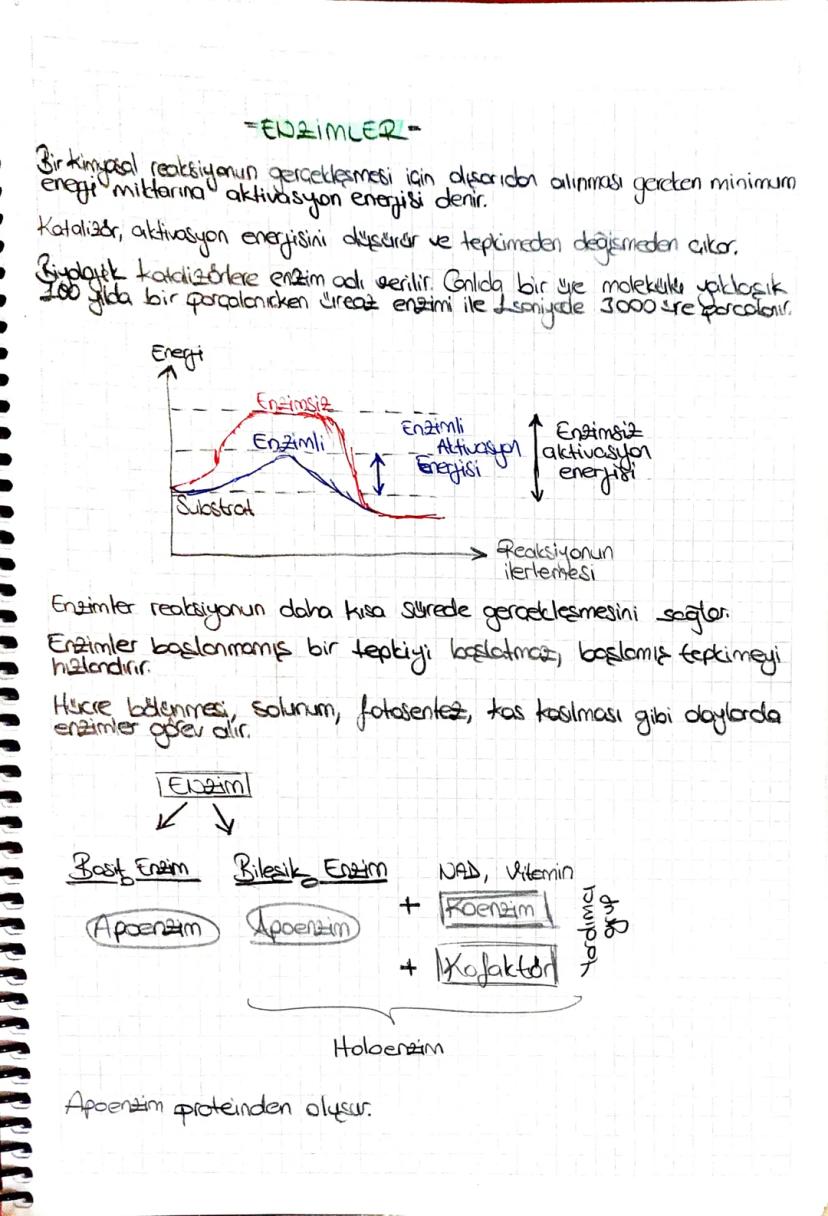 -ENZİMLER-
Bir kimyasal reaksiyonun gerçekleşmesi için dışarıdan alınması gereken minimum
enerji miktarına aktivasyon enerjisi denir.
Katalizör, aktivasyon enerjisini düşürür ve tepkimeden değişmeden çıkar.
Biyolojik katalizörlere enzim adı verilir. Canlıda bir üre molekülü yaklaşık
100 yılda bir parçalanırken üreaz enzimi ile 1 saniyede 3000 üre parçalanır.
Energi
Enzimsiz
Enzimli
Enzimli
Aktivasyon
Energisi
Enzimsiz
aktivasyon
energisi
Substrat
Reaksiyonun
ilerlemesi
Enzimler reaksiyonun daha kısa sürede gerçekleşmesini sağlar.
Enzimler başlanmamış bir tepkiyi başlatmaz, başlamış tepkimeyi
hızlandırır.
Hücre bölünmesi, solunum, fotosentez, kas kasılması gibi olaylarda
enzimler görev alır.
Enzim
Basit Enzim
Bileşik Enzim
NAD, Vitamin
Apoenzim
Apoenzim
+ Koenzim
+ Kofaktör
Yardımcı
grup
Holoenzim
Apoenzim proteinden oluşur.